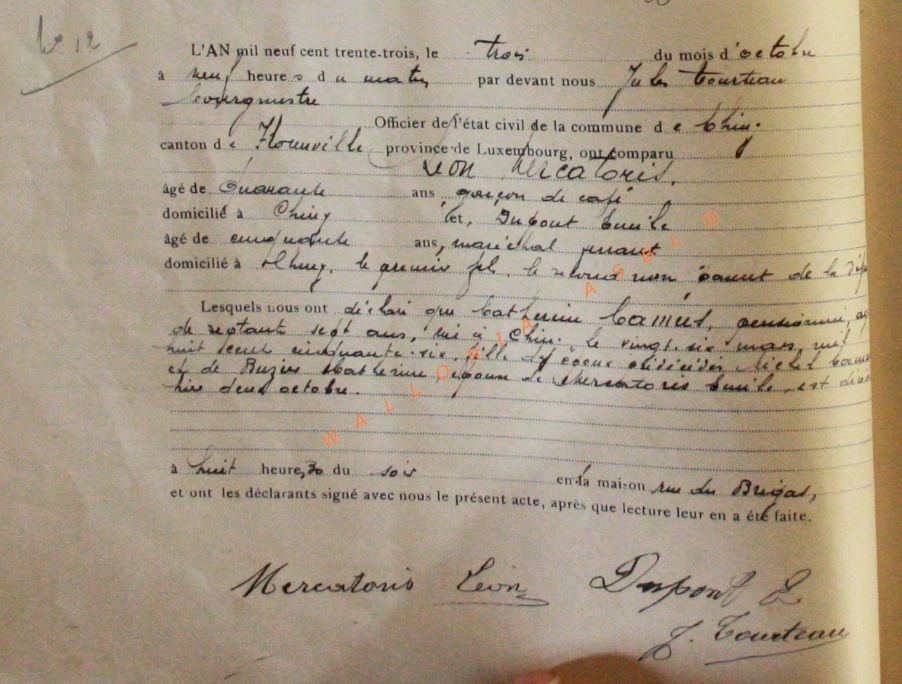 No 12
L'AN mil neuf cent trente-trois, le trois du mois d'octobre
à neuf heures du matin par devant nous Jules Tourteau
bourgmestre
Officier de l'état civil de la commune de Chiny
canton de Florenville province de Luxembourg, ont comparu
Léon Mercatoris,
âgé de quarante ans garçon de café
domicilié à Chiny et, Dupont Emile
âgé de cinquante ans, maréchal ferrant
domicilié à Chiny, le premier fils, le second non parent de la
Lesquels nous ont déclaré que Catherine Camus, pensionnée,
de septante sept ans, née à Chiny le vingt six mars, mil
huit cent cinquante-six, fille des époux décédés Michel
et de Catherine, épouse de Mercatoris Emile, est
hier deux octobre.
à huit heure,30 du soir en la maison rue du
et ont les déclarants signé avec nous le présent acte, après que lecture leur en a été faite.
Mercatoris Léon Dupont E
J. Tourteau
WALLONIA ASBL ®